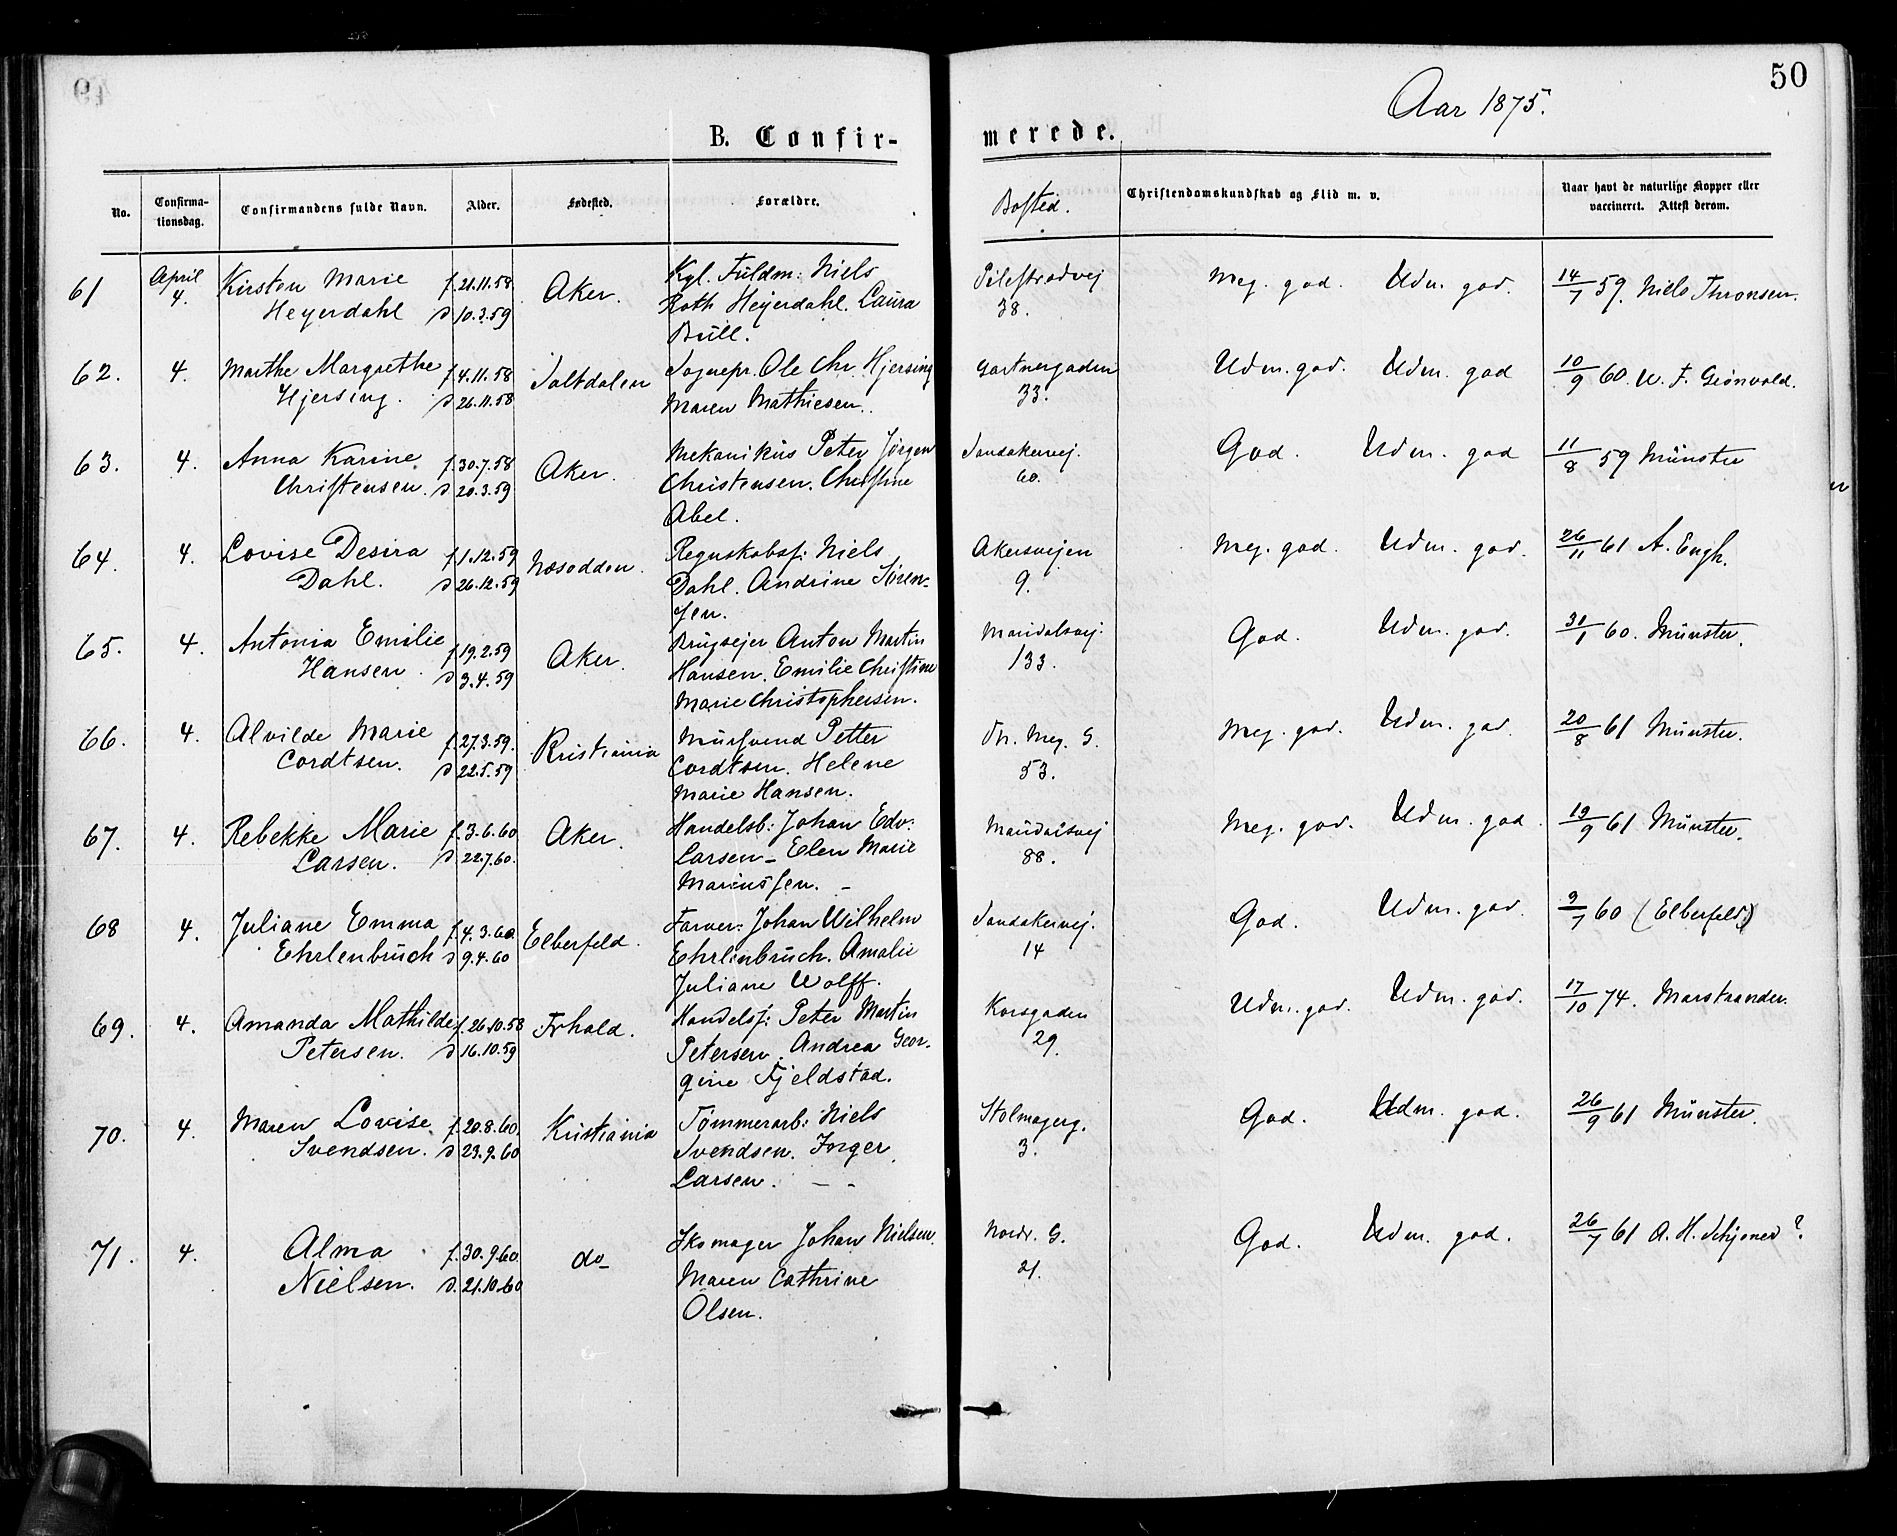 50
Aar 1875.
B. Confirmerede.
No. Confirmationsdag. Confirmandens fulde Navn. Alder. Fødested. Forældre. Bosted. Christendomskundskab og Flid m. v. Naar havt de naturlige Kopper eller vaccineret. Attest derom.
61 April 4. Kirsten Marie Heyerdahl f. 21.11.58 d 10.3.59 Aker. Kgl. Fuldm: Niels Roth Heyerdahl. Laura Bull. Pilestrædvej 38. Meg. god. Udm. god. 14/7 59. Niels Thronsen.
62. 4. Marthe Margrethe Hjersing. f 4.11.58 d 26.11.58 Saltdalen Sognepr. Ole Chr. Hjersing Maren Mathiesen. Gartnergaden 33. Udm. god. Udm. god 10/9 60. W. F. Grønvold.
63. 4. Anna Karine Christensen. f. 30.7.58 d 20.3.59 Aker. Mekanikus Peter Jørgen Christensen. Christine Abel. Sandakervej. 60. God. Udm. god 11/8 59 Münster
64. 4. Lovise Desira Dahl. f 1.12.59 d 26.12.59 Næsodden. Regnskabsf: Niels Dahl. Andrine Sørensen. Akersvejen 9. Meg. god. Udm. god. 26/11 61 A. Engh.
65. 4. Antonia Emilie Hansen. f 19.2.59 d 3.4.59 Aker. Brugsejer Anton Martin Hansen. Emilie Christine Marie Christophersen. Maridalsvej. 133. God. Udm. god. 31/1 60. Münster.
66. 4. Alvilde Marie Cordtsen. f. 27.3.59. d 22.5.59 Kristiania Mursvend Petter Cordtsen. Helene Marie Hansen. Th. Mey. G. 53. Meg. god. Udm. god. 20/8 61 Münster.
67. 4. Rebekke Marie Larsen. f. 3.6.60 d. 22.7.60. Aker. Handelsb: Johan Edv: Larsen – Elen Marie Mariussen. – Maridalsvej 88. Meg. god. Udm. god. 19/9 61 Münster.
68 4. Juliane Emma Ehrlenbruch f. 4.3.60 d 9.4.60 Elberfeld. Farver: Johan Wilhelm Ehrlenbruch. Amalie Juliane Wolff. Sandakervej. 14 God. Udm. god. 9/7 60 (Elberfeld)
69. 4. Amanda Mathilde Petersen. f. 26.10.58 d 16.10.59 Frhald. Handelsf: Peter Martin Petersen. Andrea Georgine Fjeldstad. Korsgaden 29. Udm. god. Udm. god. 17/10 74. Marstrander.
70. 4. Maren Lovise Svendsen. f. 20.8.60. d 23.9.60 Kristiania Tømmerarb: Niels Svendsen. Larsen. – – Stolmagerg. 3. God. Udm. god. 26/9 61 Münster.
71. 4. Alma Nielsen. f. 30.9.60. d. 21.10.60 do– Skomager Johan Nielsen. Maren Cathrine Olsen. Nordr. G. 21. God. Udm. god. 26/7 61 A. H. Schjøned ?